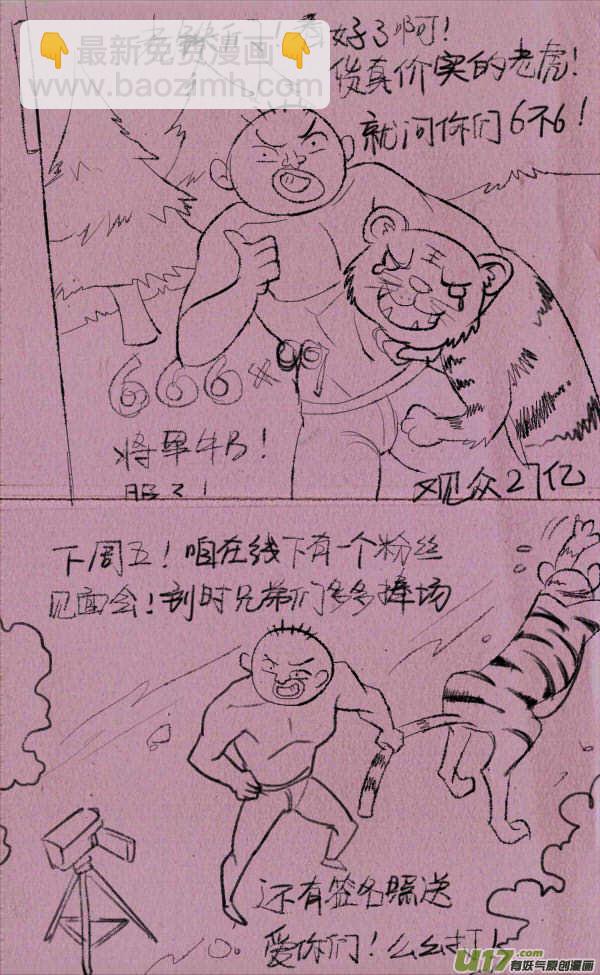 最新免费漫画
www.baozimh.com
看好了啊!
货真价实的老虎!
就问你们6不6!
666
将军牛B!
服了!
观众27亿
下周五!咱在线下有一个粉丝
见面会!到时兄弟们多多捧场
还有签名照送
爱你们!么么打!
U17.com
有妖气原创漫画